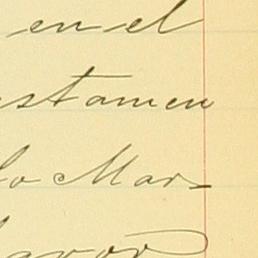 en el
stamen
lo Mar-
favor